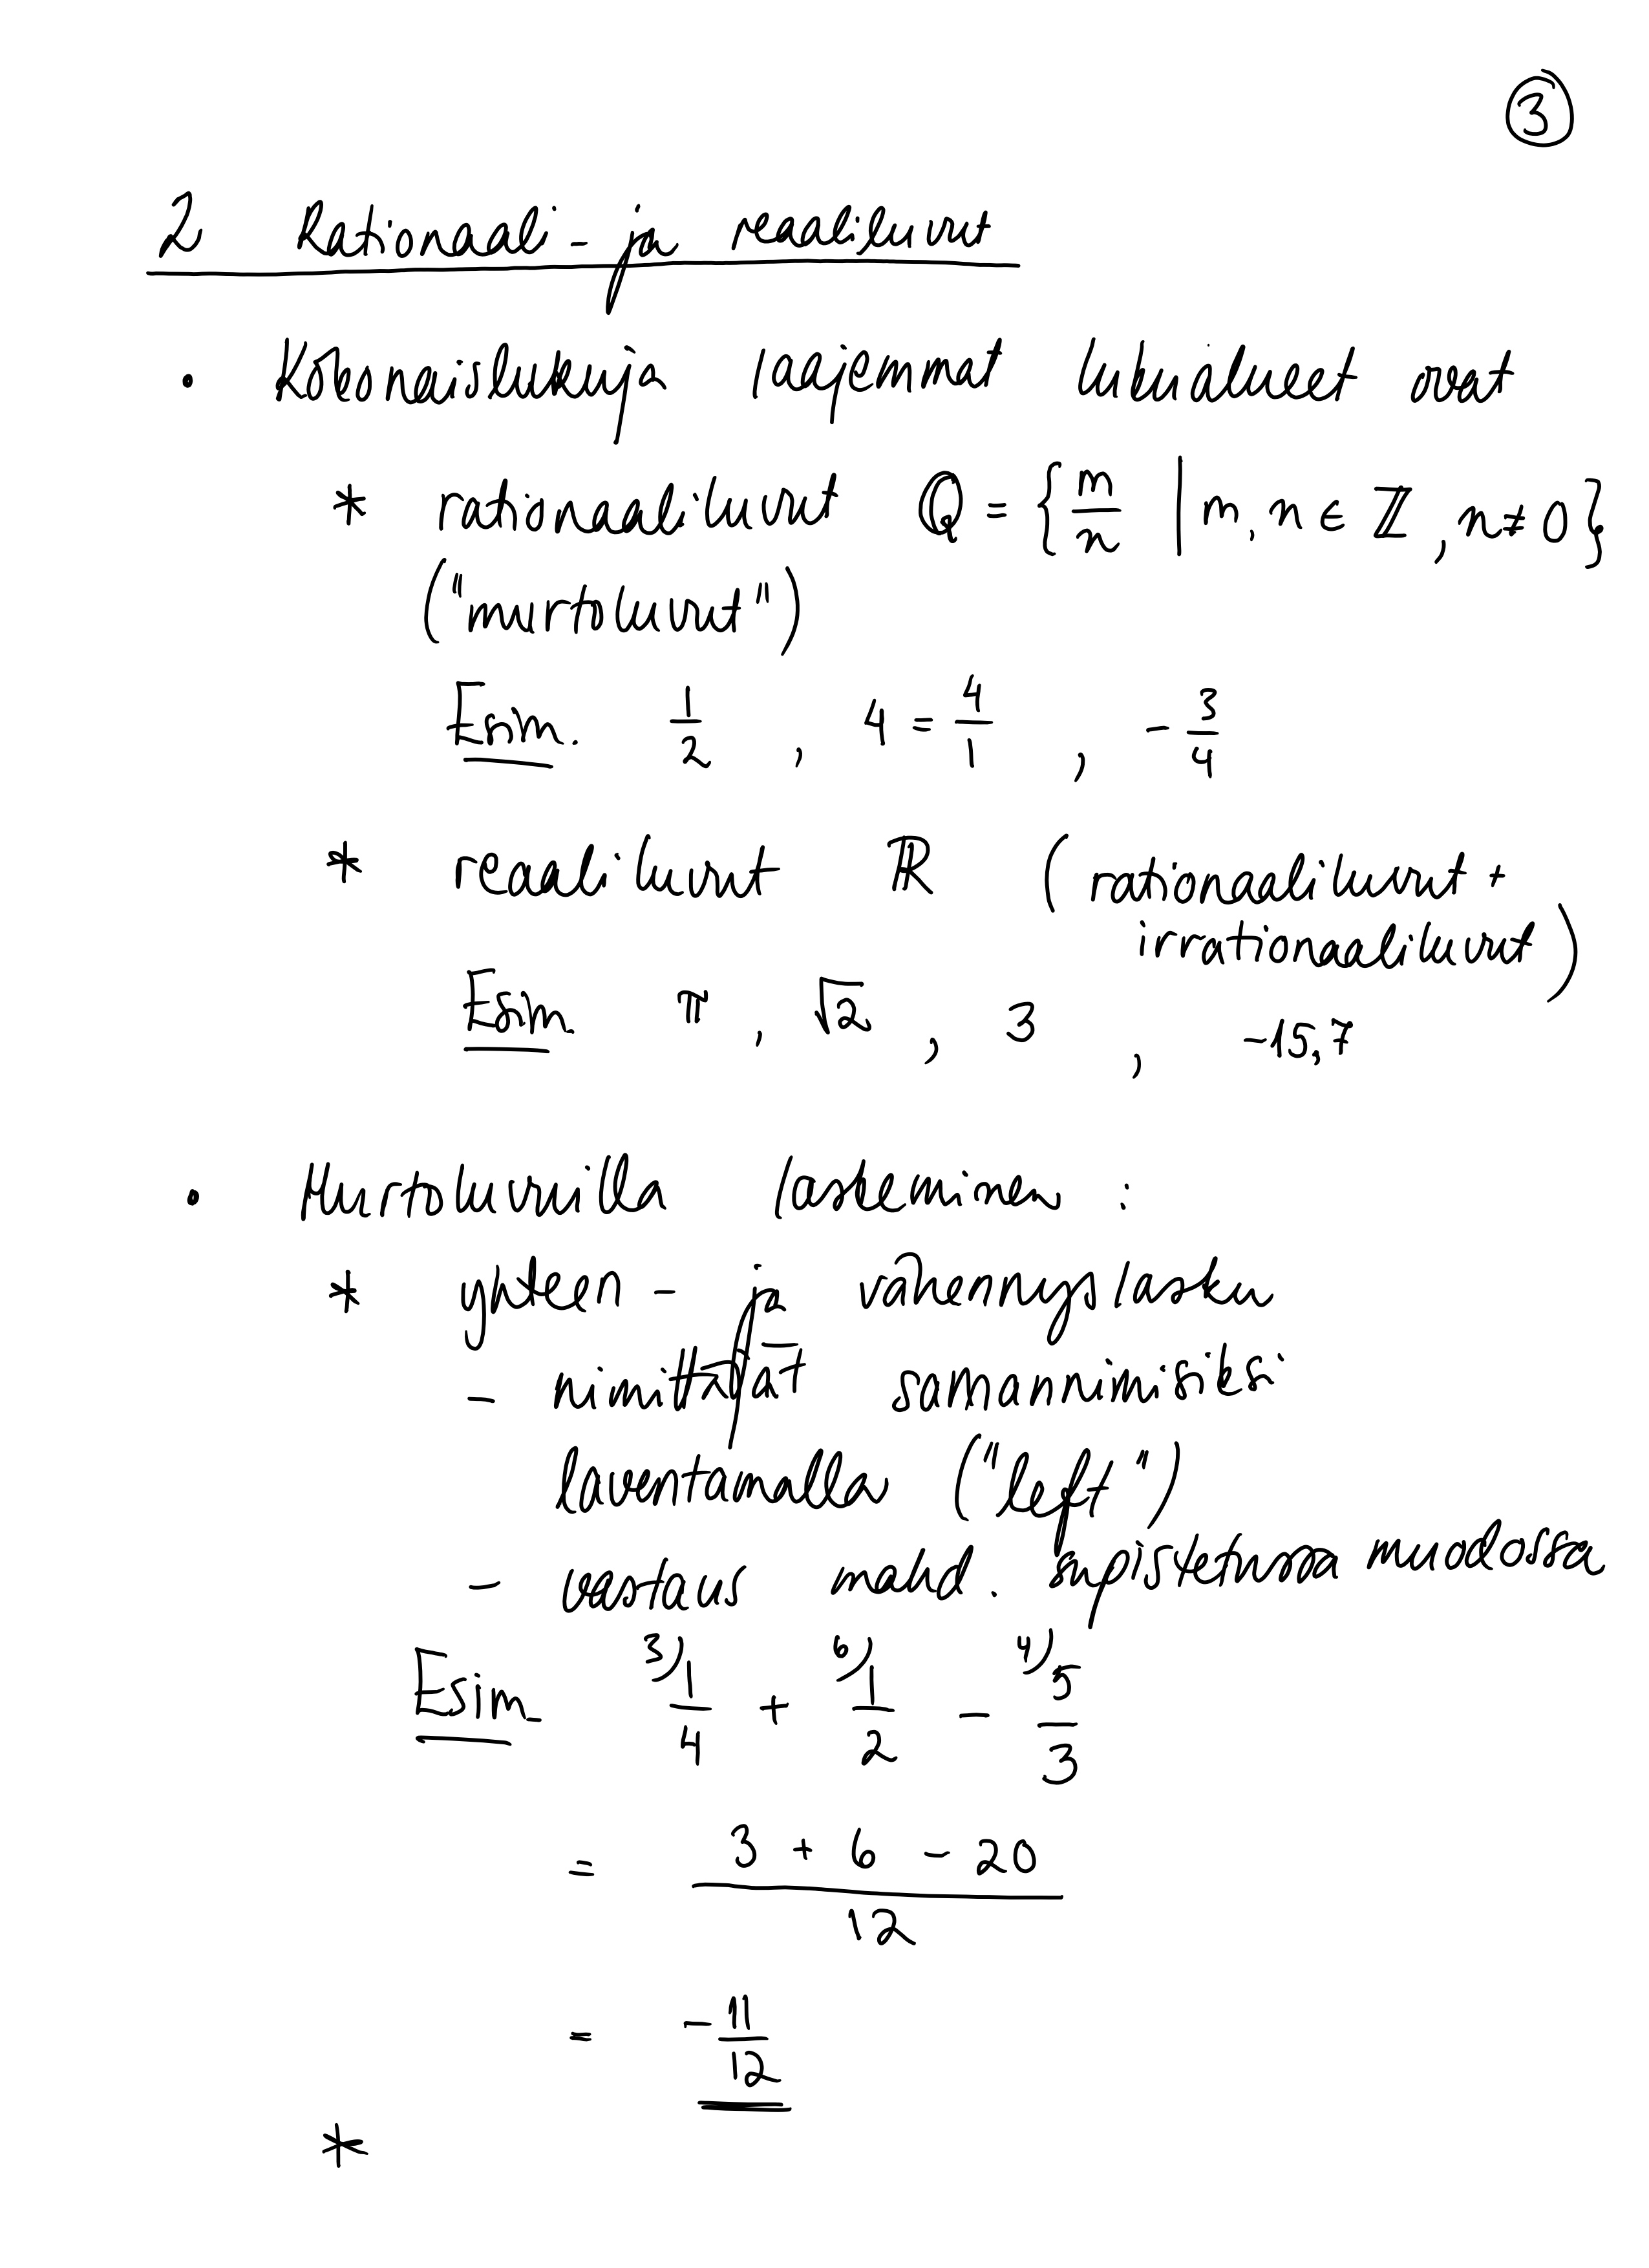 ③
2 Rationaali- ja reaaliluvut
• Kokonaislukuja laajemmat lukualueet ovat
* rationaaliluvut ℚ = { m/n | m, n ∈ ℤ, n ≠ 0 }
("murtoluvut")
Esim. 1/2 , 4 = 4/1 , - 3/4
* reaaliluvut ℝ ( rationaaliluvut +
irrationaaliluvut )
Esim. π , √2 , 3 , -15,7
• Murtoluvuilla laskeminen :
* yhteen- ja vähennyslasku
- nimittäjät samannimisiksi
laventamalla ("left")
- vastaus mahd. supistetussa muodossa
Esim. ³⁾1/4 + ⁶⁾1/2 - ⁴⁾5/3
= (3 + 6 - 20)/12
= - 11/12
*